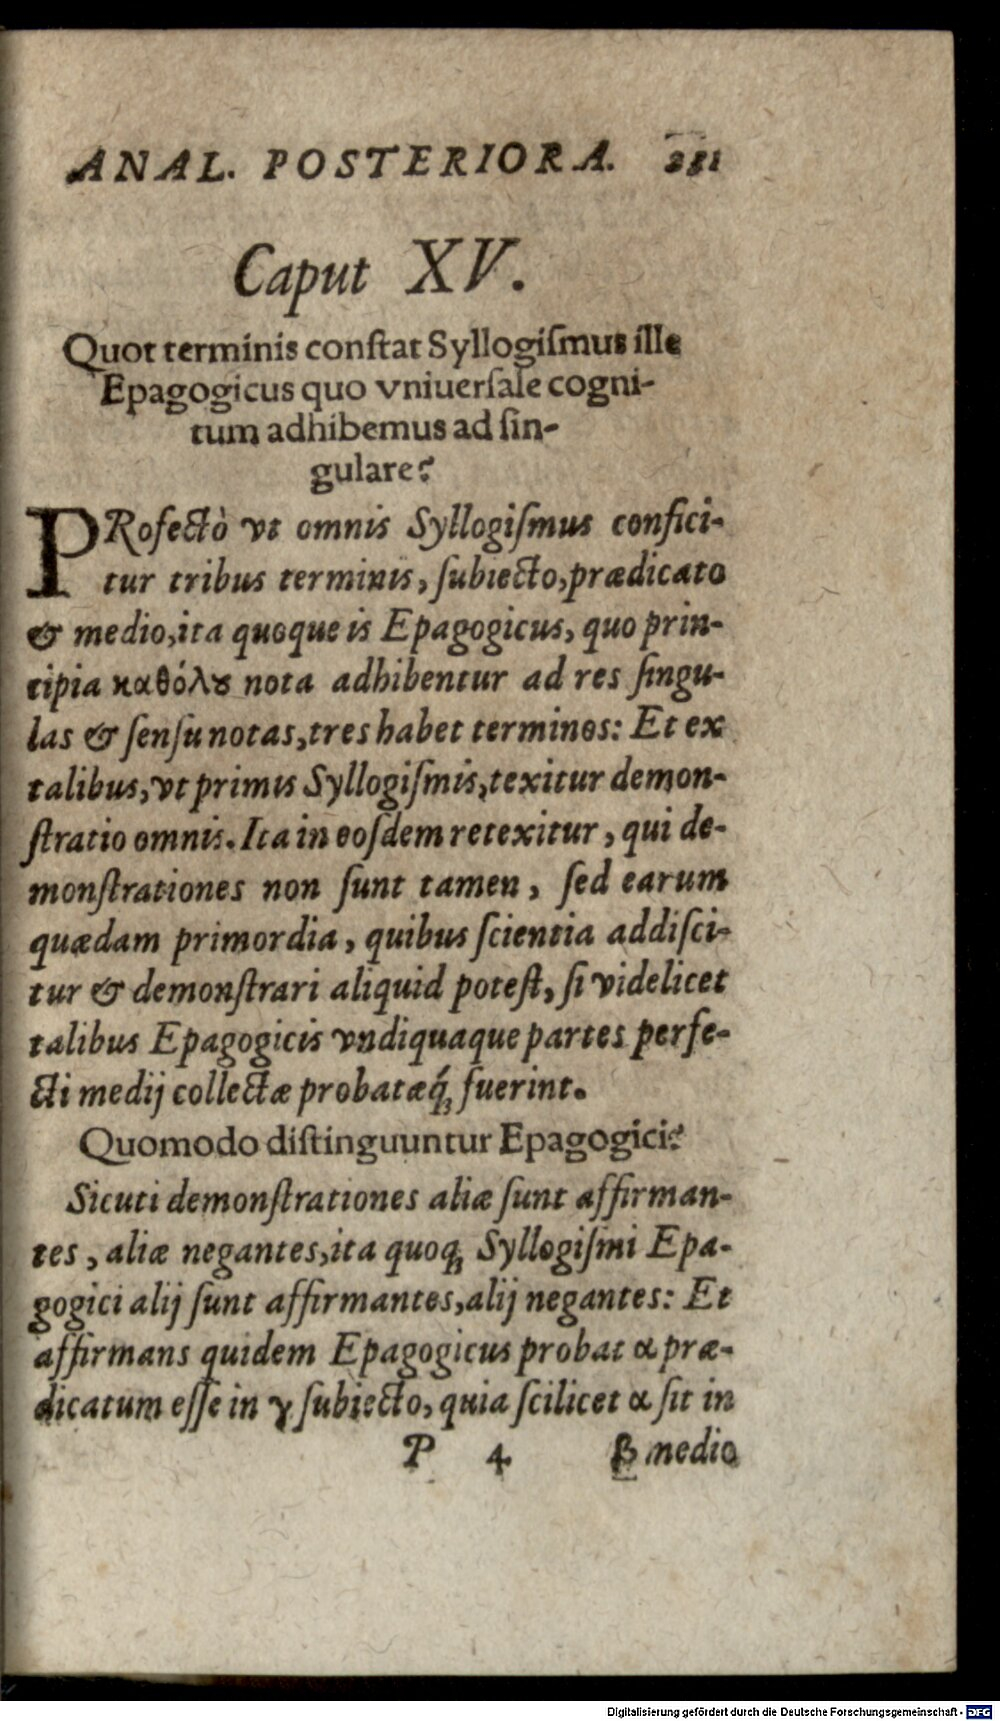 ANAL. POSTERIORA. 231
Caput XV.
Quot terminis conſtat Syllogiſmus ille
Epagogicus quo vniuerſale cogni-
tum adhibemus ad ſin-
gulare?
PRofectò vt omnis Syllogiſmus confici-
tur tribus terminis, ſubiecto, prædicato
& medio, ita quoque is Epagogicus, quo prin-
cipia καθόλȣ nota adhibentur ad res ſingu-
las & ſenſu notas, tres habet terminos: Et ex
talibus, vt primis Syllogiſmis, texitur demon-
ſtratio omnis. Ita in eoſdem retexitur, qui de-
monſtrationes non ſunt tamen, ſed earum
quædam primordia, quibus ſcientia addiſci-
tur & demonſtrari aliquid poteſt, ſi videlicet
talibus Epagogicis vndiquaque partes perfe-
cti medij collectæ probatæq́; fuerint.
Quomodo diſtinguuntur Epagogici?
Sicuti demonſtrationes aliæ ſunt affirman-
tes, aliæ negantes, ita quoq; Syllogiſmi Epa-
gogici alij ſunt affirmantes, alij negantes: Et
affirmans quidem Epagogicus probat α præ-
dicatum eſſe in γ ſubiecto, quia ſcilicet α ſit in
P 4 β medio
Digitalisierung gefördert durch die Deutsche Forschungsgemeinschaft - DFG